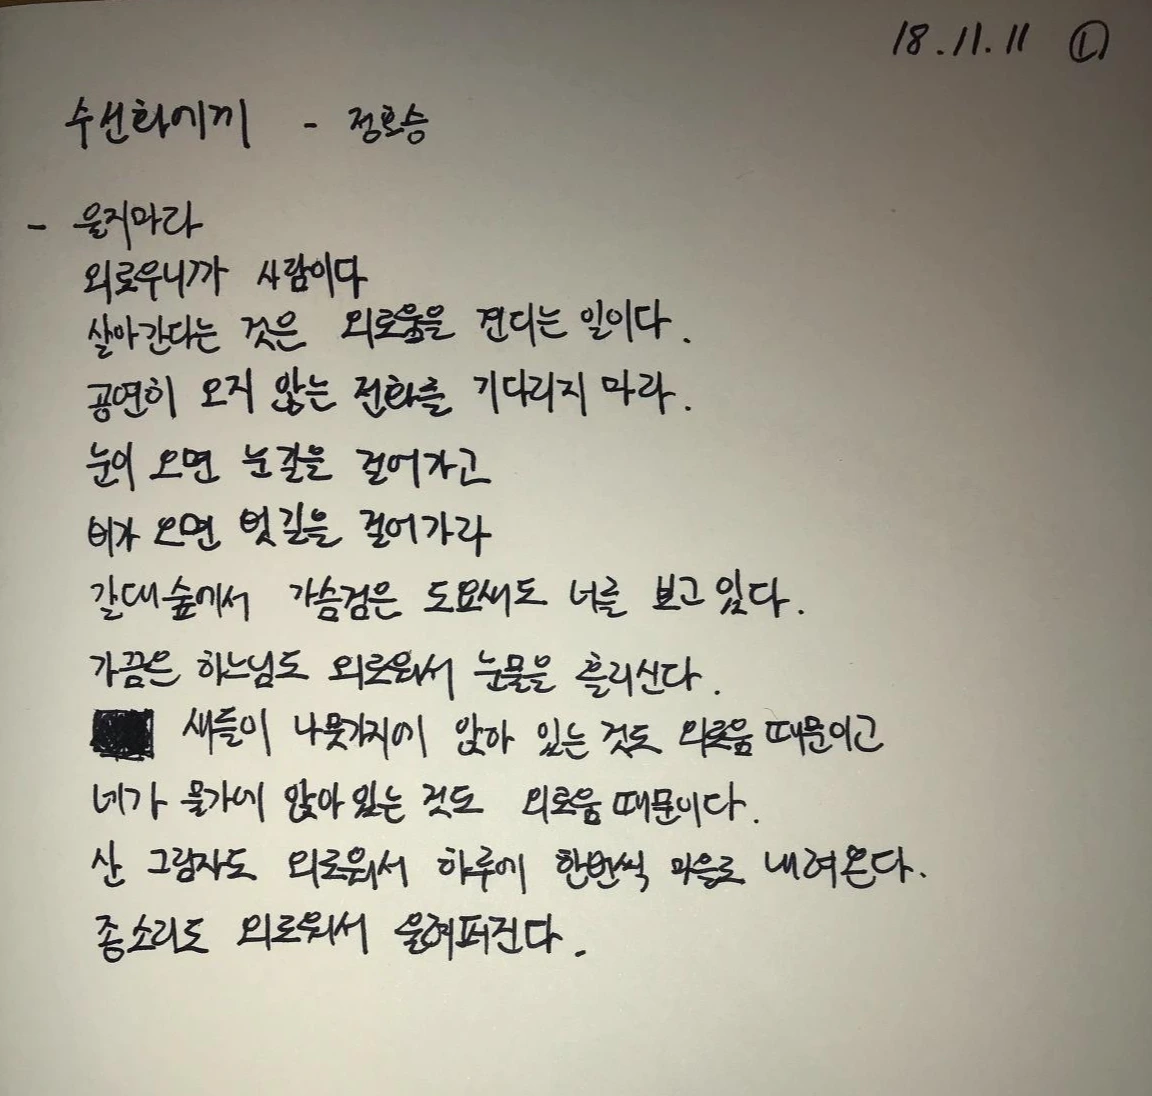 18.11.11 Ⓛ
수선화에게 - 정호승
- 울지마라
외로우니까 사람이다
살아간다는 것은 외로움을 견디는 일이다.
공연히 오지 않는 전화를 기다리지 마라.
눈이 오면 눈길을 걸어가고
비가 오면 빗길을 걸어가라
갈대숲에서 가슴검은 도요새도 너를 보고 있다.
가끔은 하느님도 외로워서 눈물을 흘리신다.
새들이 나뭇가지에 앉아 있는 것도 외로움 때문이고
네가 물가에 앉아 있는 것도 외로움 때문이다.
산 그림자도 외로워서 하루에 한번씩 마을로 내려온다.
종소리도 외로워서 울려퍼진다.